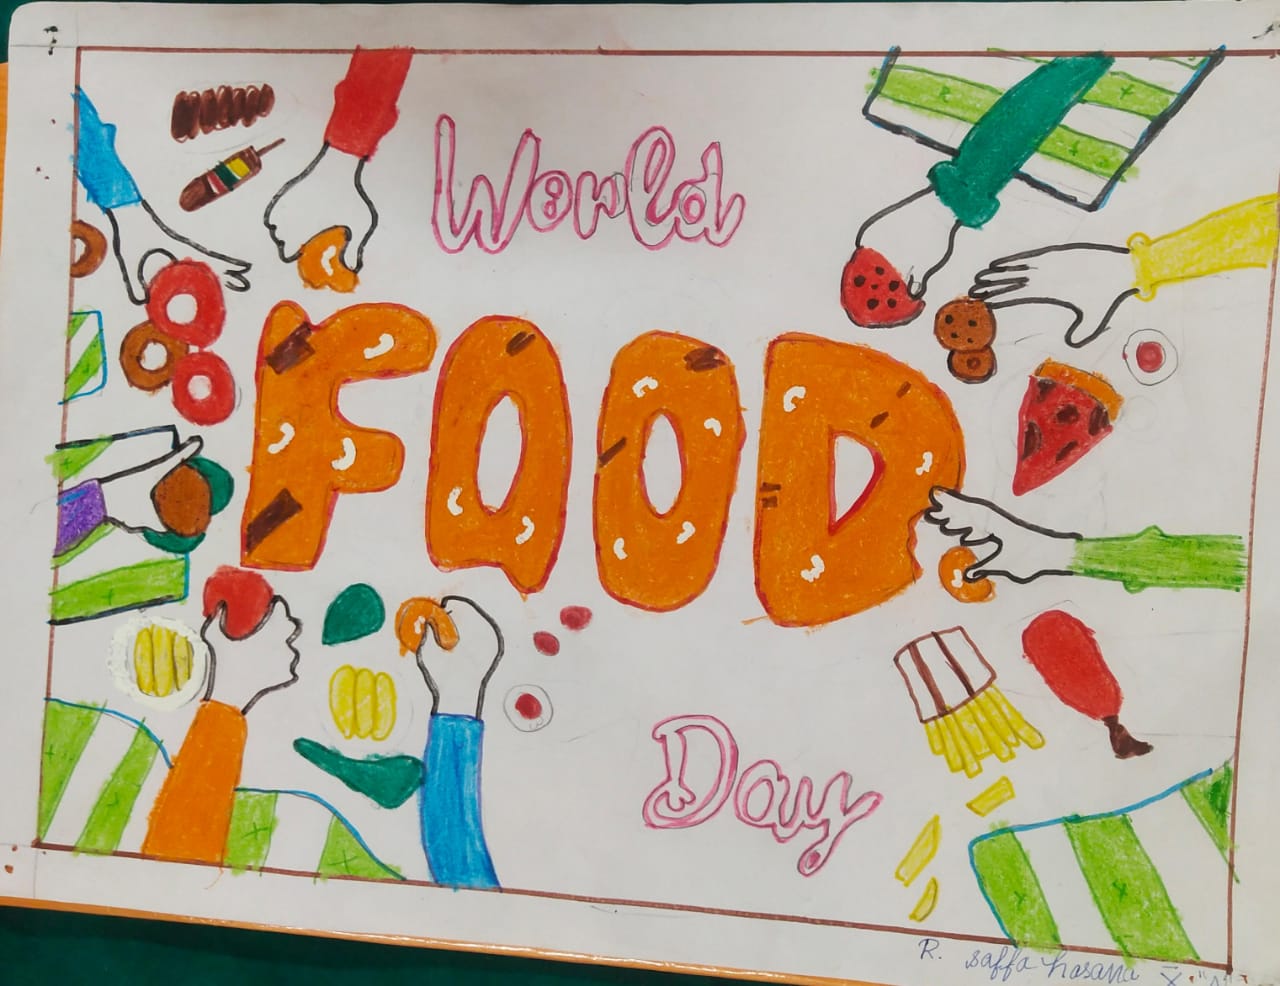 World
FOOD
Day
R. Saffa hasana X "A"